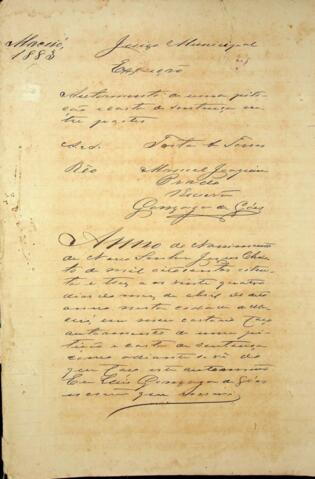 Maceió,
1883
Juizo Municipal
Execução
Autoamento de uma peti-
ção e carta de sentença en-
tre partes
A.
Réo Manoel Joaquim
Prado
Escrivão
Gonzaga de Góes
Anno do Nascimento
de Nosso Senhor Jesus Chris-
to de mil oitocentos oiten-
ta e tres, aos vinte quatro
dias do mez de Abril do dito
anno nesta cidade de Ma-
ceió, em meu cartorio faço
autoamento de uma pe-
tição e carta de sentença
como adiante se vê do
que faço este autoamento
Eu Luis Gonzaga de Góes
escrivão que escrevi